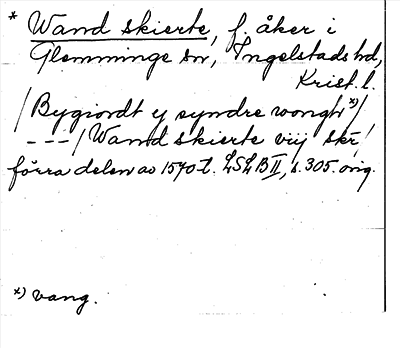 * Wand skierte, f. åker i
Glemminge sn, Ingelstads hd,
Krist. l.
/Bygiordt y syndre wongh *)/
---/Wand skierte vij skr̄
förra delen av 1570-t. LSLB II, s. 305. orig.
*) vang.